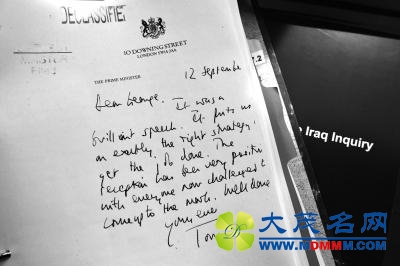 DECLASSIFIED
10 DOWNING STREET
LONDON SW1A 2AA
THE PRIME MINISTER
12 September
Dear George. It was a
brilliant speech. It puts us
on exactly the right strategy,
to get the job done. The
reception has been very positive
with everyone now challenged to
come up to the mark. Well done
Yours ever
Tony
.2
e Iraq Inquiry
大茂名网
www.MDMMM.com